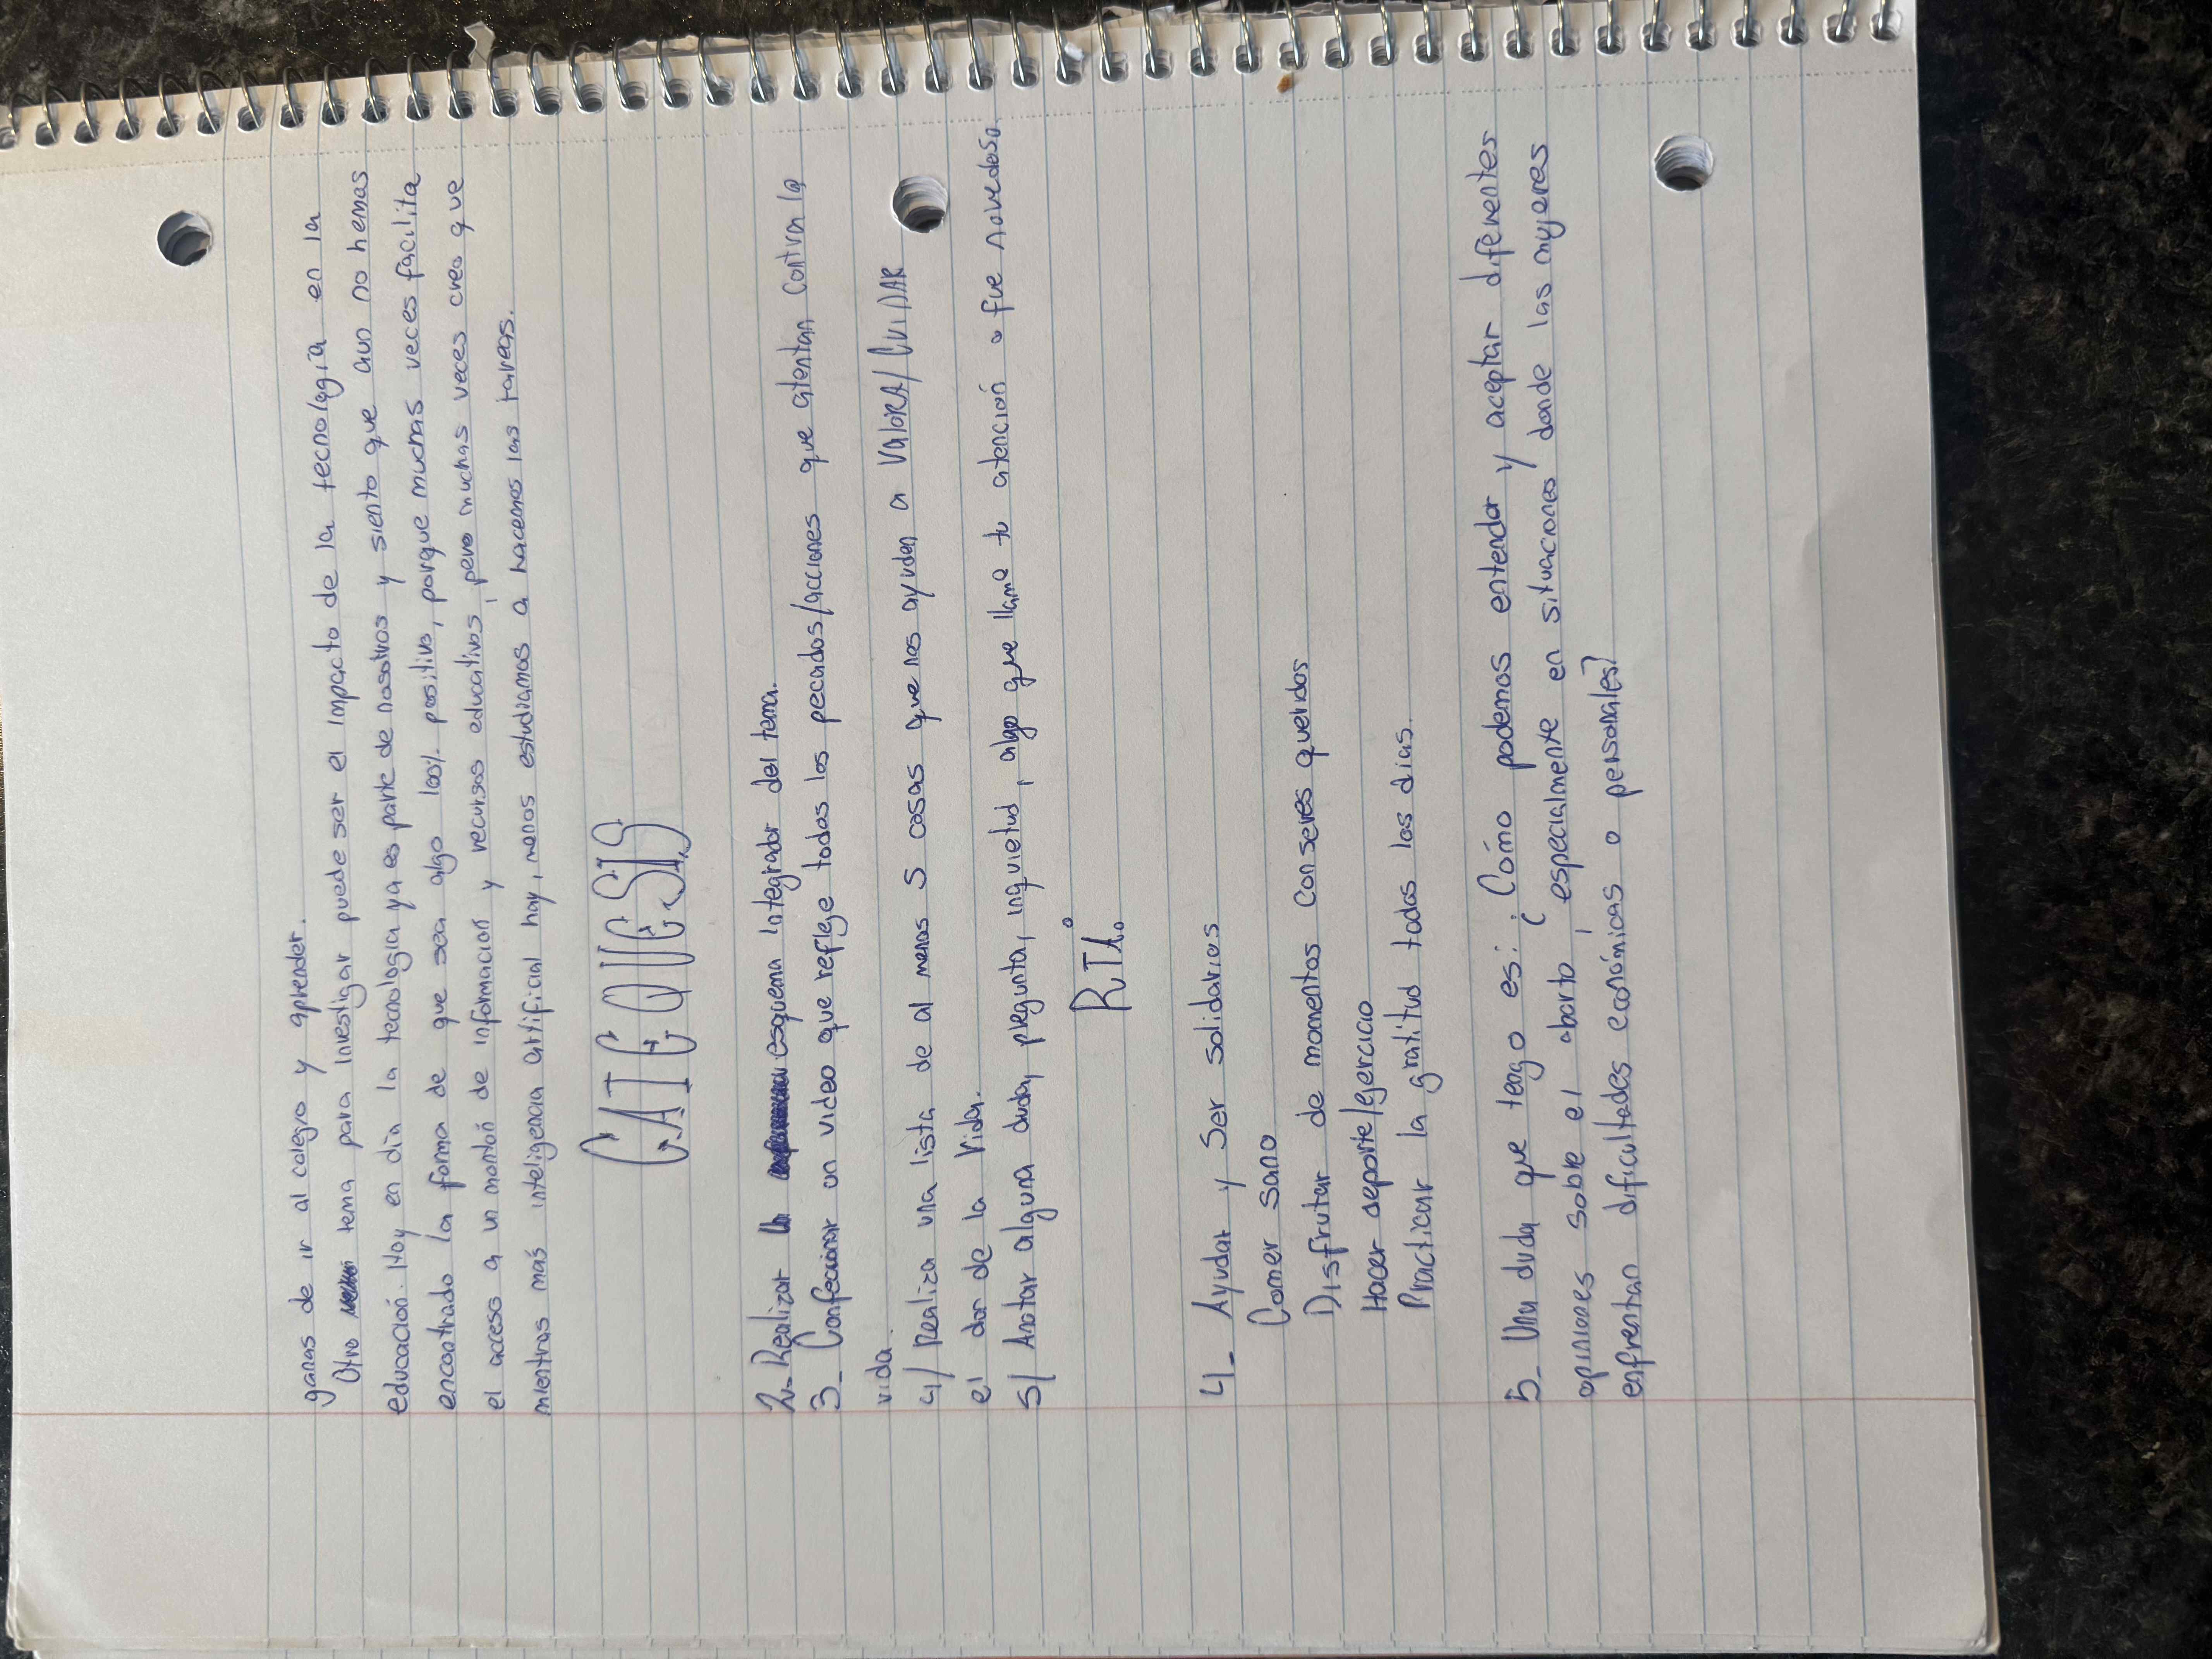 ganas de ir al colegio y aprender.
Otro tema para investigar puede ser el impacto de la tecnología en la
educación. Hoy en día la tecnologia ya es parte de nosotros y siento que aun no hemos
encontrado la forma de que sea algo 100% positivo, porque muchas veces facilita
el acceso a un montón de información y recursos educativos, pero muchas veces creo que
mientras más inteligencia artificial hay, menos estudiamos o hacemos las tareas.
CATEQUESIS
2- Realizar esquema integrador del tema.
3- Confeccionar un video que refleje todos los pecados/acciones que atentan contra la
vida.
4/ Realiza una lista de al menos 5 cosas que nos ayuden a VALORA/CUIDAR
el don de la Vida.
5/ Anotar alguna duda, pregunta, inquietud, algo que llame tu atención o fue novedoso.
RTA:
4- Ayudar y ser solidarios
Comer sano
Disfrutar de momentos con seres queridos
Hacer deporte/ejercicio
Practicar la gratitud todos los dias.
5- Una duda que tengo es: ¿Cómo podemos entender y aceptar diferentes
opiniones sobre el aborto, especialmente en situaciones donde las mujeres
enfrentan dificultades económicas o personales?